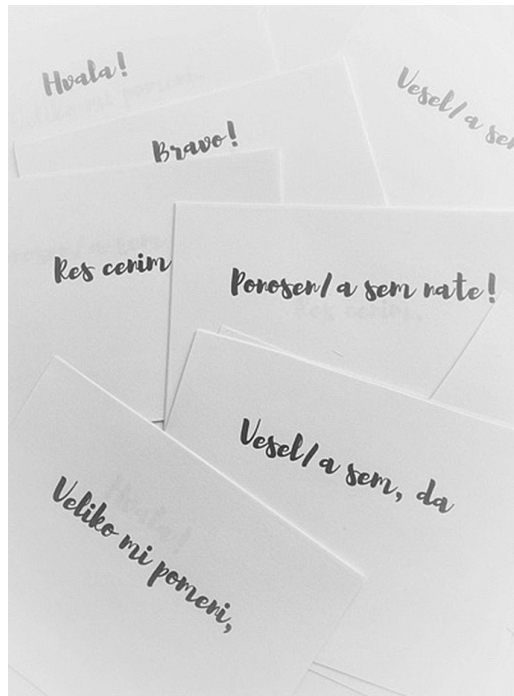 Hvala!
Vesel/a sem
Bravo!
Res cenim
Ponosen/a sem nate!
Vesel/a sem, da
Veliko mi pomeni,